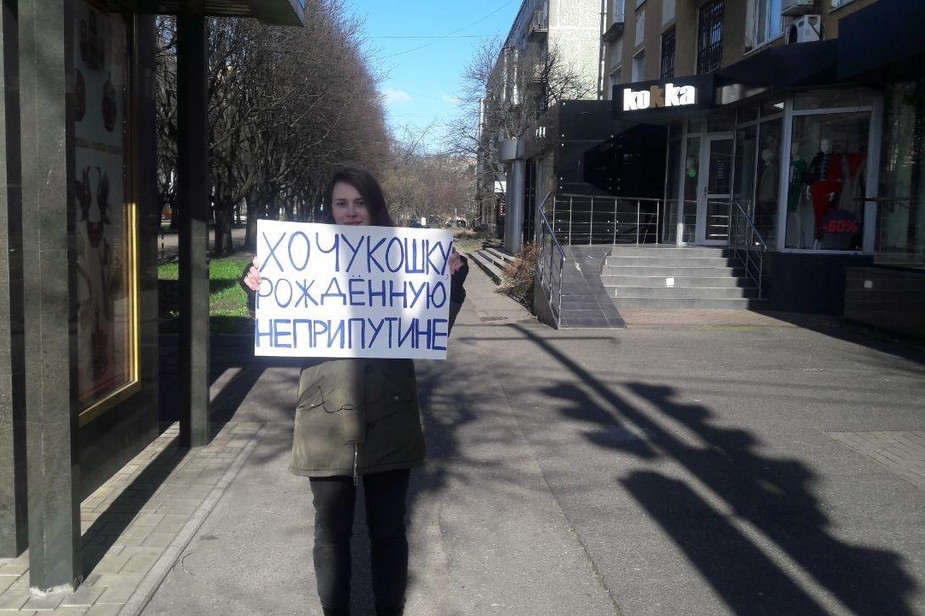 ХОЧУ КОШКУ
РОЖДЁННУЮ
НЕ ПРИ ПУТИНЕ
kokka
-50%